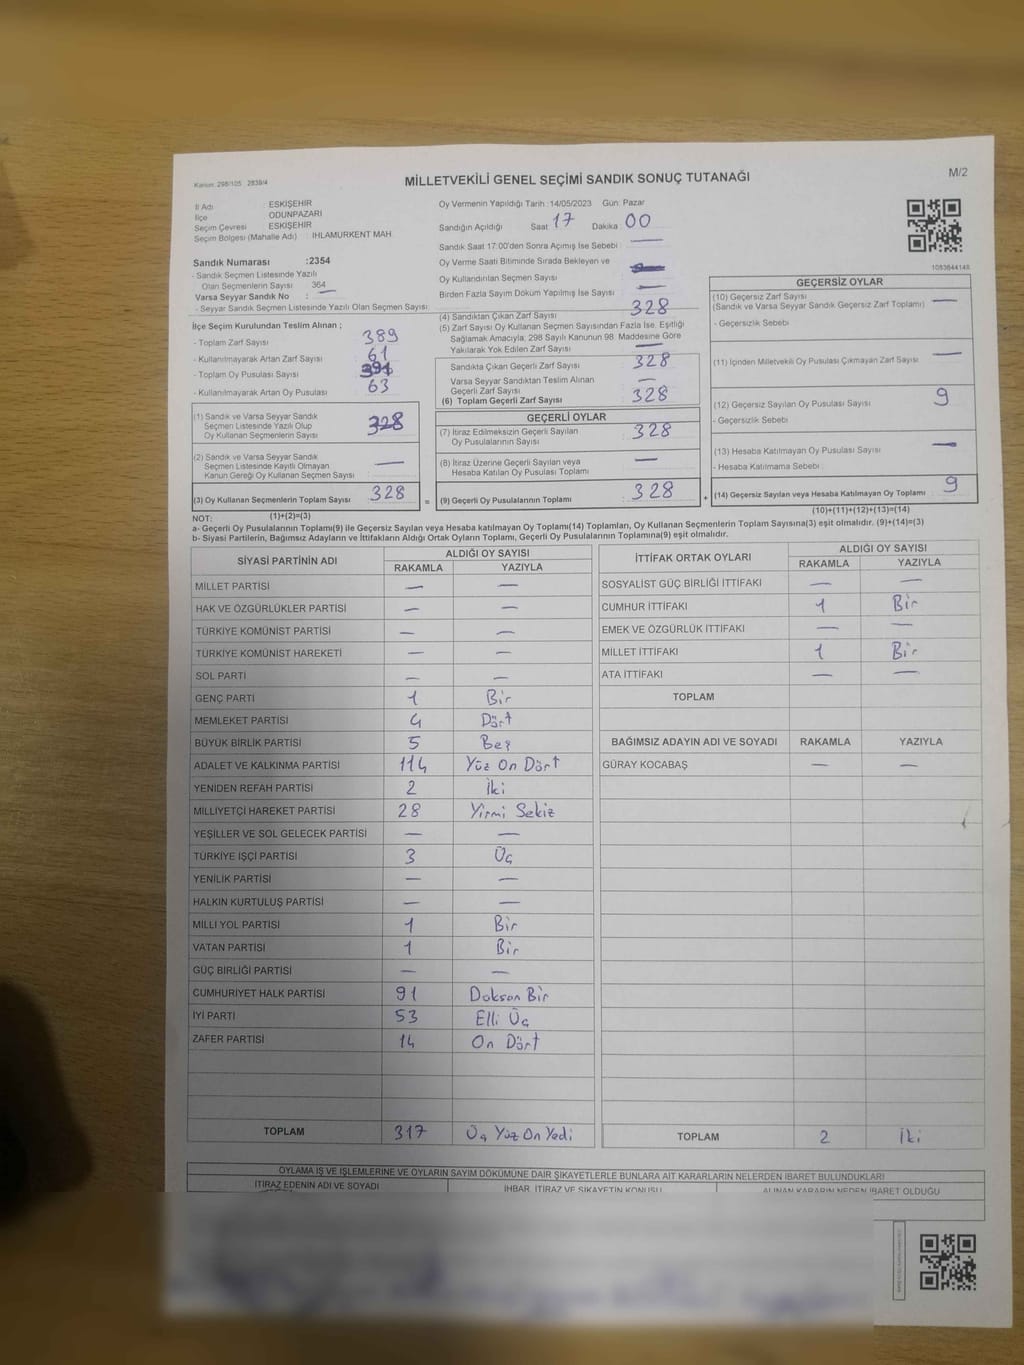 Kanun: 298/105 2839/4
MİLLETVEKİLİ GENEL SEÇİMİ SANDIK SONUÇ TUTANAĞI
M/2
İl Adı ESKİŞEHİR
İlçe ODUNPAZARI
Seçim Çevresi ESKİŞEHİR
Seçim Bölgesi (Mahalle Adı) : IHLAMURKENT MAH.
Oy Vermenin Yapıldığı Tarih :14/05/2023 Gün: Pazar
Sandığın Açıldığı Saat 17 Dakika 00
Sandık Saat 17:00'den Sonra Açımış İse Sebebi —
Oy Verme Saati Bitiminde Sırada Bekleyen ve
Oy Kullandırılan Seçmen Sayısı
Birden Fazla Sayım Döküm Yapılmış İse Sayısı —
Sandık Numarası :2354
- Sandık Seçmen Listesinde Yazılı
Olan Seçmenlerin Sayısı 364
Varsa Seyyar Sandık No : —
- Seyyar Sandık Seçmen Listesinde Yazılı Olan Seçmen Sayısı:
1083844148
İlçe Seçim Kurulundan Teslim Alınan ;
- Toplam Zarf Sayısı 389
- Kullanılmayarak Artan Zarf Sayısı 61
- Toplam Oy Pusulası Sayısı
- Kullanılmayarak Artan Oy Pusulası 63
(1) Sandık ve Varsa Seyyar Sandık
Seçmen Listesinde Yazılı Olup
Oy Kullanan Seçmenlerin Sayısı 328
(2) Sandık ve Varsa Seyyar Sandık
Seçmen Listesinde Kayıtlı Olmayan
Kanun Gereği Oy Kullanan Seçmen Sayısı —
(3) Oy Kullanan Seçmenlerin Toplam Sayısı 328
(1)+(2)=(3)
(4) Sandıktan Çıkan Zarf Sayısı 328
(5) Zarf Sayısı Oy Kullanan Seçmen Sayısından Fazla İse, Eşitliği
Sağlamak Amacıyla, 298 Sayılı Kanunun 98. Maddesine Göre
Yakılarak Yok Edilen Zarf Sayısı —
Sandıkta Çıkan Geçerli Zarf Sayısı 328
Varsa Seyyar Sandıktan Teslim Alınan
Geçerli Zarf Sayısı —
(6) Toplam Geçerli Zarf Sayısı 328
GEÇERLİ OYLAR
(7) İtiraz Edilmeksizin Geçerli Sayılan
Oy Pusulalarının Sayısı 328
(8) İtiraz Üzerine Geçerli Sayılan veya
Hesaba Katılan Oy Pusulası Toplamı —
= (9) Geçerli Oy Pusulalarının Toplamı : 328 +
GEÇERSİZ OYLAR
(10) Geçersiz Zarf Sayısı
(Sandık ve Varsa Seyyar Sandık Geçersiz Zarf Toplamı) —
- Geçersizlik Sebebi :
(11) İçinden Milletvekili Oy Pusulası Çıkmayan Zarf Sayısı —
(12) Geçersiz Sayılan Oy Pusulası Sayısı 9
- Geçersizlik Sebebi :
(13) Hesaba Katılmayan Oy Pusulası Sayısı —
- Hesaba Katılmama Sebebi :
(14) Geçersiz Sayılan veya Hesaba Katılmayan Oy Toplamı 9
(10)+(11)+(12)+(13)=(14)
NOT:
a- Geçerli Oy Pusulalarının Toplamı(9) ile Geçersiz Sayılan veya Hesaba katılmayan Oy Toplamı(14) Toplamları, Oy Kullanan Seçmenlerin Toplam Sayısına(3) eşit olmalıdır. (9)+(14)=(3)
b- Siyasi Partilerin, Bağımsız Adayların ve İttifakların Aldığı Ortak Oyların Toplamı, Geçerli Oy Pusulalarının Toplamına(9) eşit olmalıdır.
SİYASİ PARTİNİN ADI ALDIĞI OY SAYISI
RAKAMLA YAZIYLA
MİLLET PARTİSİ — —
HAK VE ÖZGÜRLÜKLER PARTİSİ — —
TÜRKİYE KOMÜNİST PARTİSİ — —
TÜRKİYE KOMÜNİST HAREKETİ — —
SOL PARTİ — —
GENÇ PARTİ 1 Bir
MEMLEKET PARTİSİ 4 Dört
BÜYÜK BİRLİK PARTİSİ 5 Beş
ADALET VE KALKINMA PARTİSİ 114 Yüz On Dört
YENİDEN REFAH PARTİSİ 2 İki
MİLLİYETÇİ HAREKET PARTİSİ 28 Yirmi Sekiz
YEŞİLLER VE SOL GELECEK PARTİSİ — —
TÜRKİYE İŞÇİ PARTİSİ 3 Üç
YENİLİK PARTİSİ — —
HALKIN KURTULUŞ PARTİSİ — —
MİLLİ YOL PARTİSİ 1 Bir
VATAN PARTİSİ 1 Bir
GÜÇ BİRLİĞİ PARTİSİ — —
CUMHURİYET HALK PARTİSİ 91 Doksan Bir
İYİ PARTİ 53 Elli Üç
ZAFER PARTİSİ 14 On Dört
TOPLAM 317 Üç Yüz On Yedi
İTTİFAK ORTAK OYLARI ALDIĞI OY SAYISI
RAKAMLA YAZIYLA
SOSYALİST GÜÇ BİRLİĞİ İTTİFAKI — —
CUMHUR İTTİFAKI 1 Bir
EMEK VE ÖZGÜRLÜK İTTİFAKI — —
MİLLET İTTİFAKI 1 Bir
ATA İTTİFAKI — —
TOPLAM
BAĞIMSIZ ADAYIN ADI VE SOYADI RAKAMLA YAZIYLA
GÜRAY KOCABAŞ — —
TOPLAM 2 İki
OYLAMA İŞ VE İŞLEMLERİNE VE OYLARIN SAYIM DÖKÜMÜNE DAİR ŞİKAYETLERLE BUNLARA AİT KARARLARIN NELERDEN İBARET BULUNDUKLARI
İTİRAZ EDENİN ADI VE SOYADI İHBAR, İTİRAZ VE ŞİKAYETİN KONUSU ALINAN KARARIN NEDEN İBARET OLDUĞU